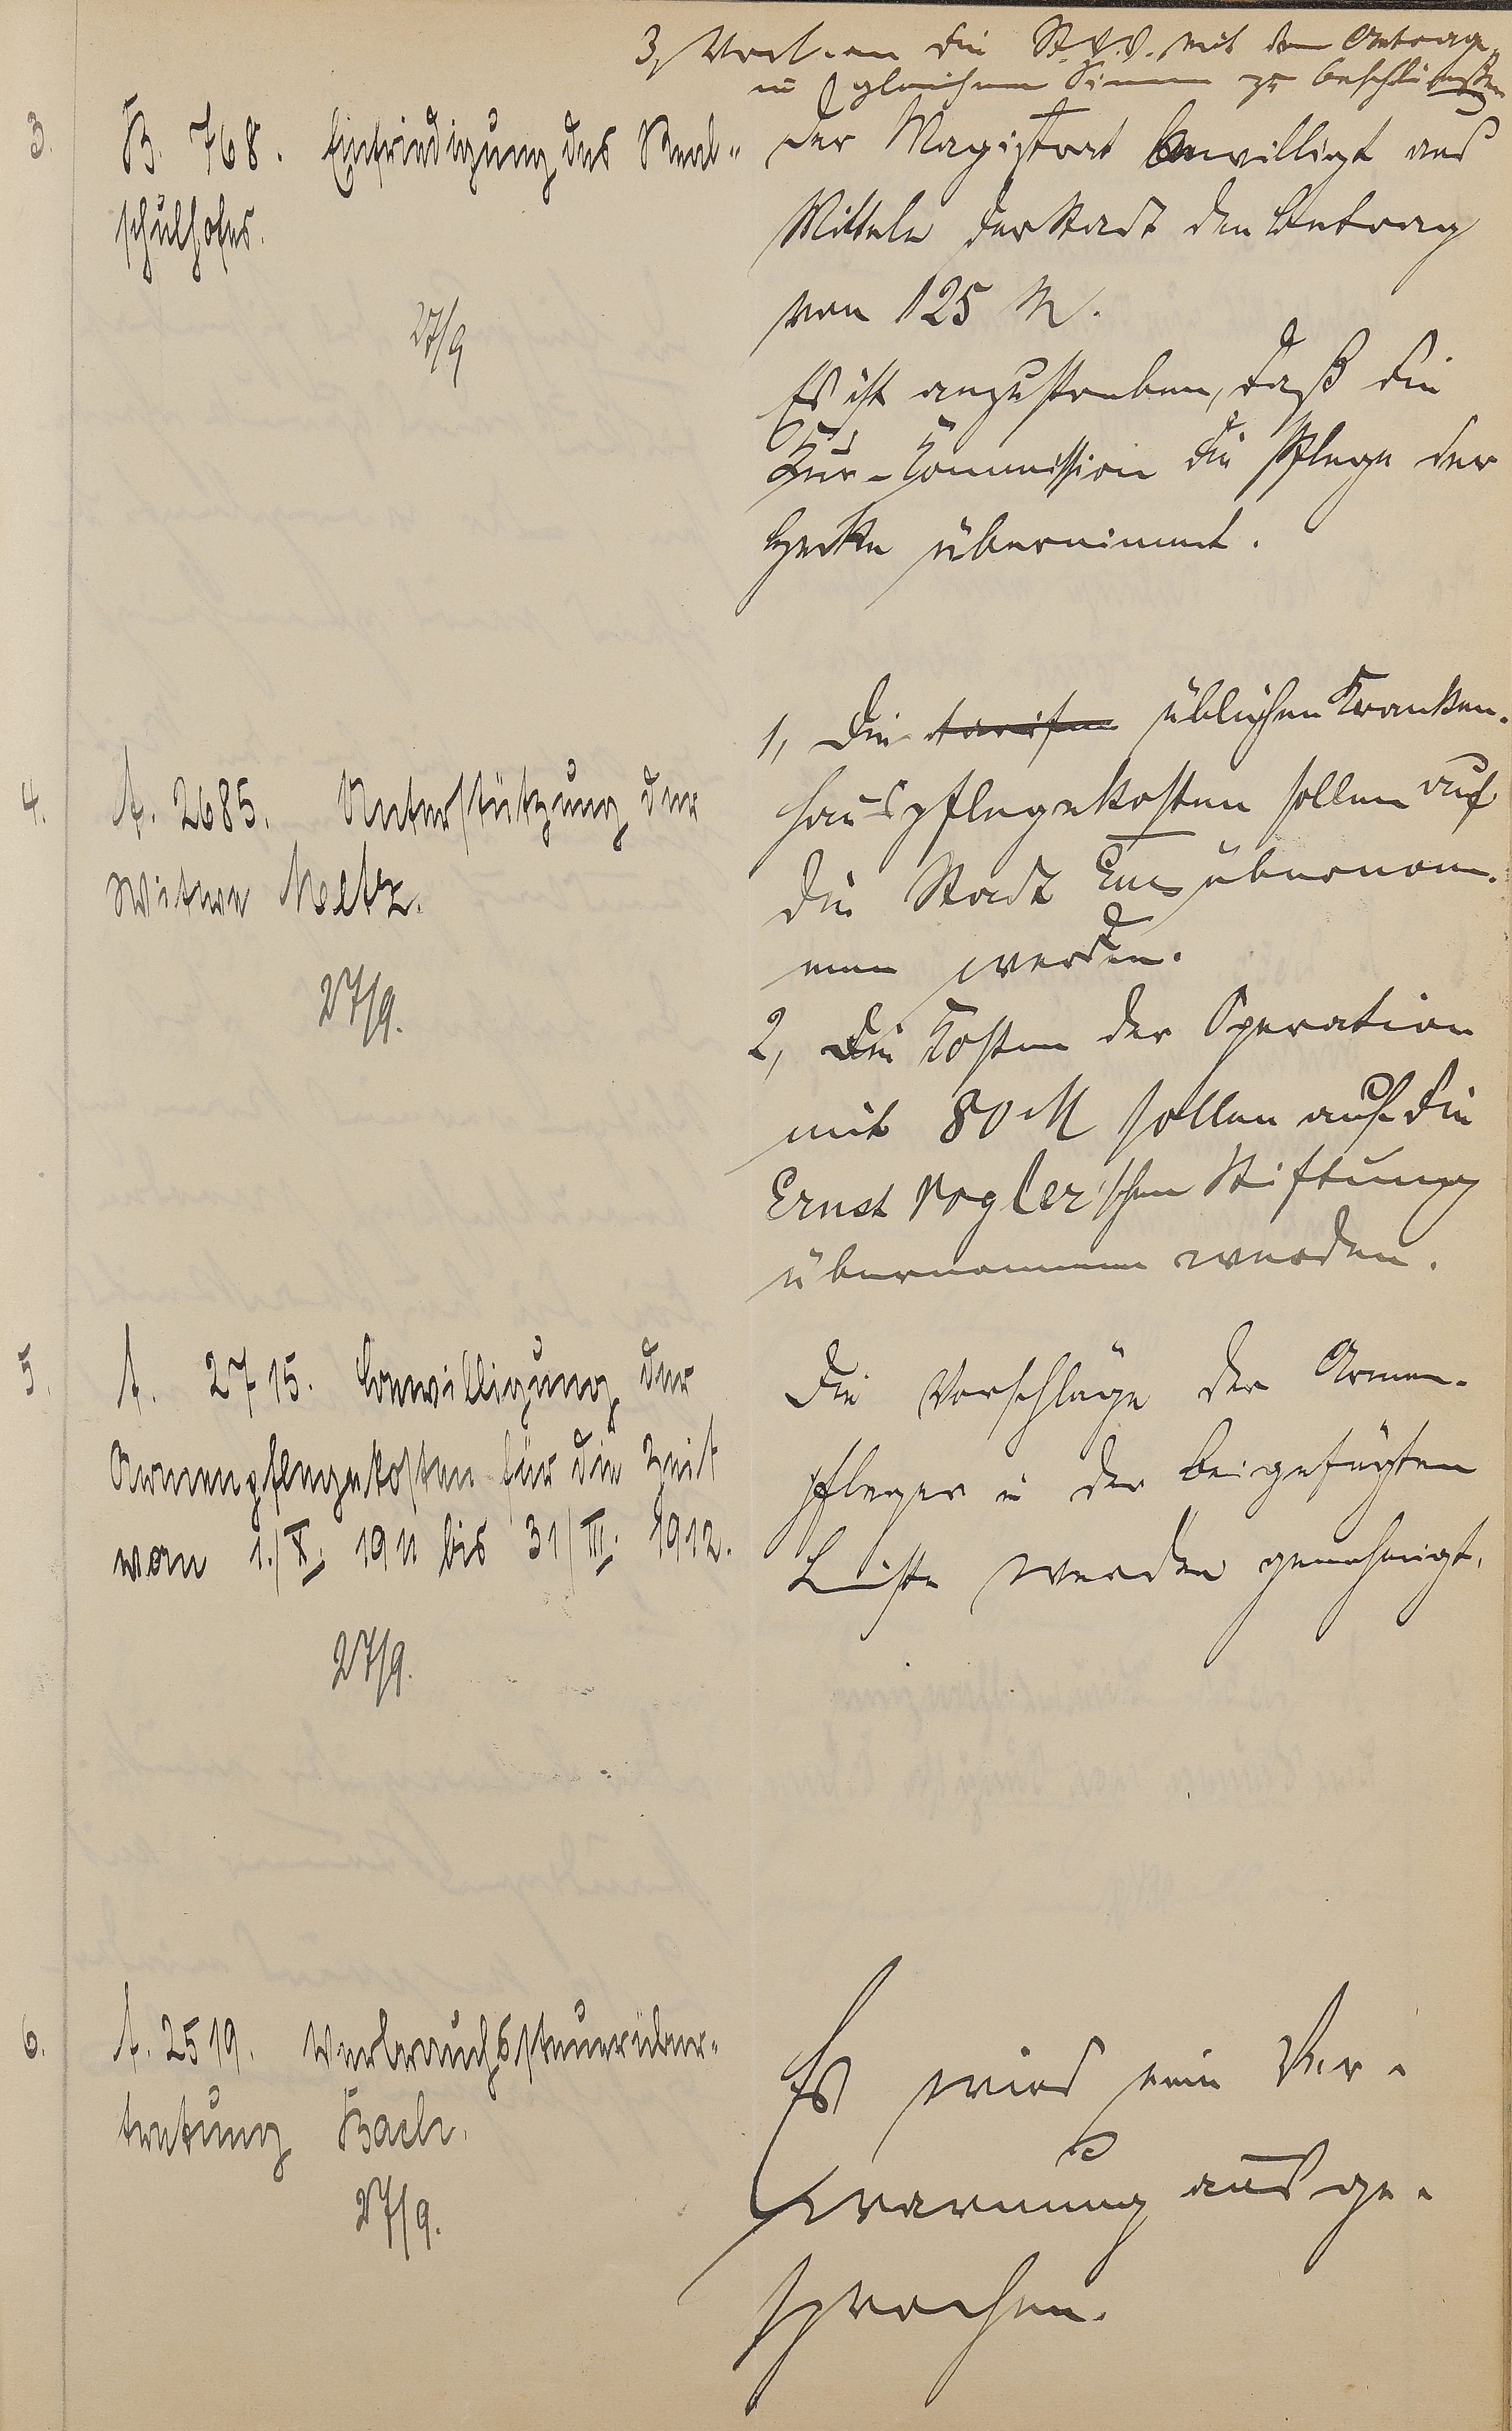 3, Vorl. an die St.V.V. mit dem Antrage,
in gleichem Sinne zu beschließen
3.
B. 768. Einfriedigung des Real-
schulhofes.
27/9
Der Magistrat bewilligt aus
Mitteln der Stadt den Betrag
von 125 M.
Es ist anzustreben, daß die
Kur-Kommission die Pflege der
Hecke übernimmt.
4.
A. 2685. Unterstützung der
Witwe Metz.
27/9.
1, Die üblichen Kranken-
hauspflegekosten sollen auf
die Stadt Ems übernom-
men werden.
2, Die Kosten der Operation
mit 80 M sollen auf die
Ernst Vogler'schen Stiftung
übernommen werden.
5.
A. 2715. Bewilligung der
Armenpflegekosten für die Zeit
vom 1./X. 1911 bis 31/III. 1912.
27/9.
Die Vorschläge der Armen-
pfleger in der beigefügten
Liste werden genehmigt.
6.
A. 2519. Verbrauchssteuerüber-
tretung Bach.
27/9.
Es wird eine Ver-
warnung ausge-
sprochen.